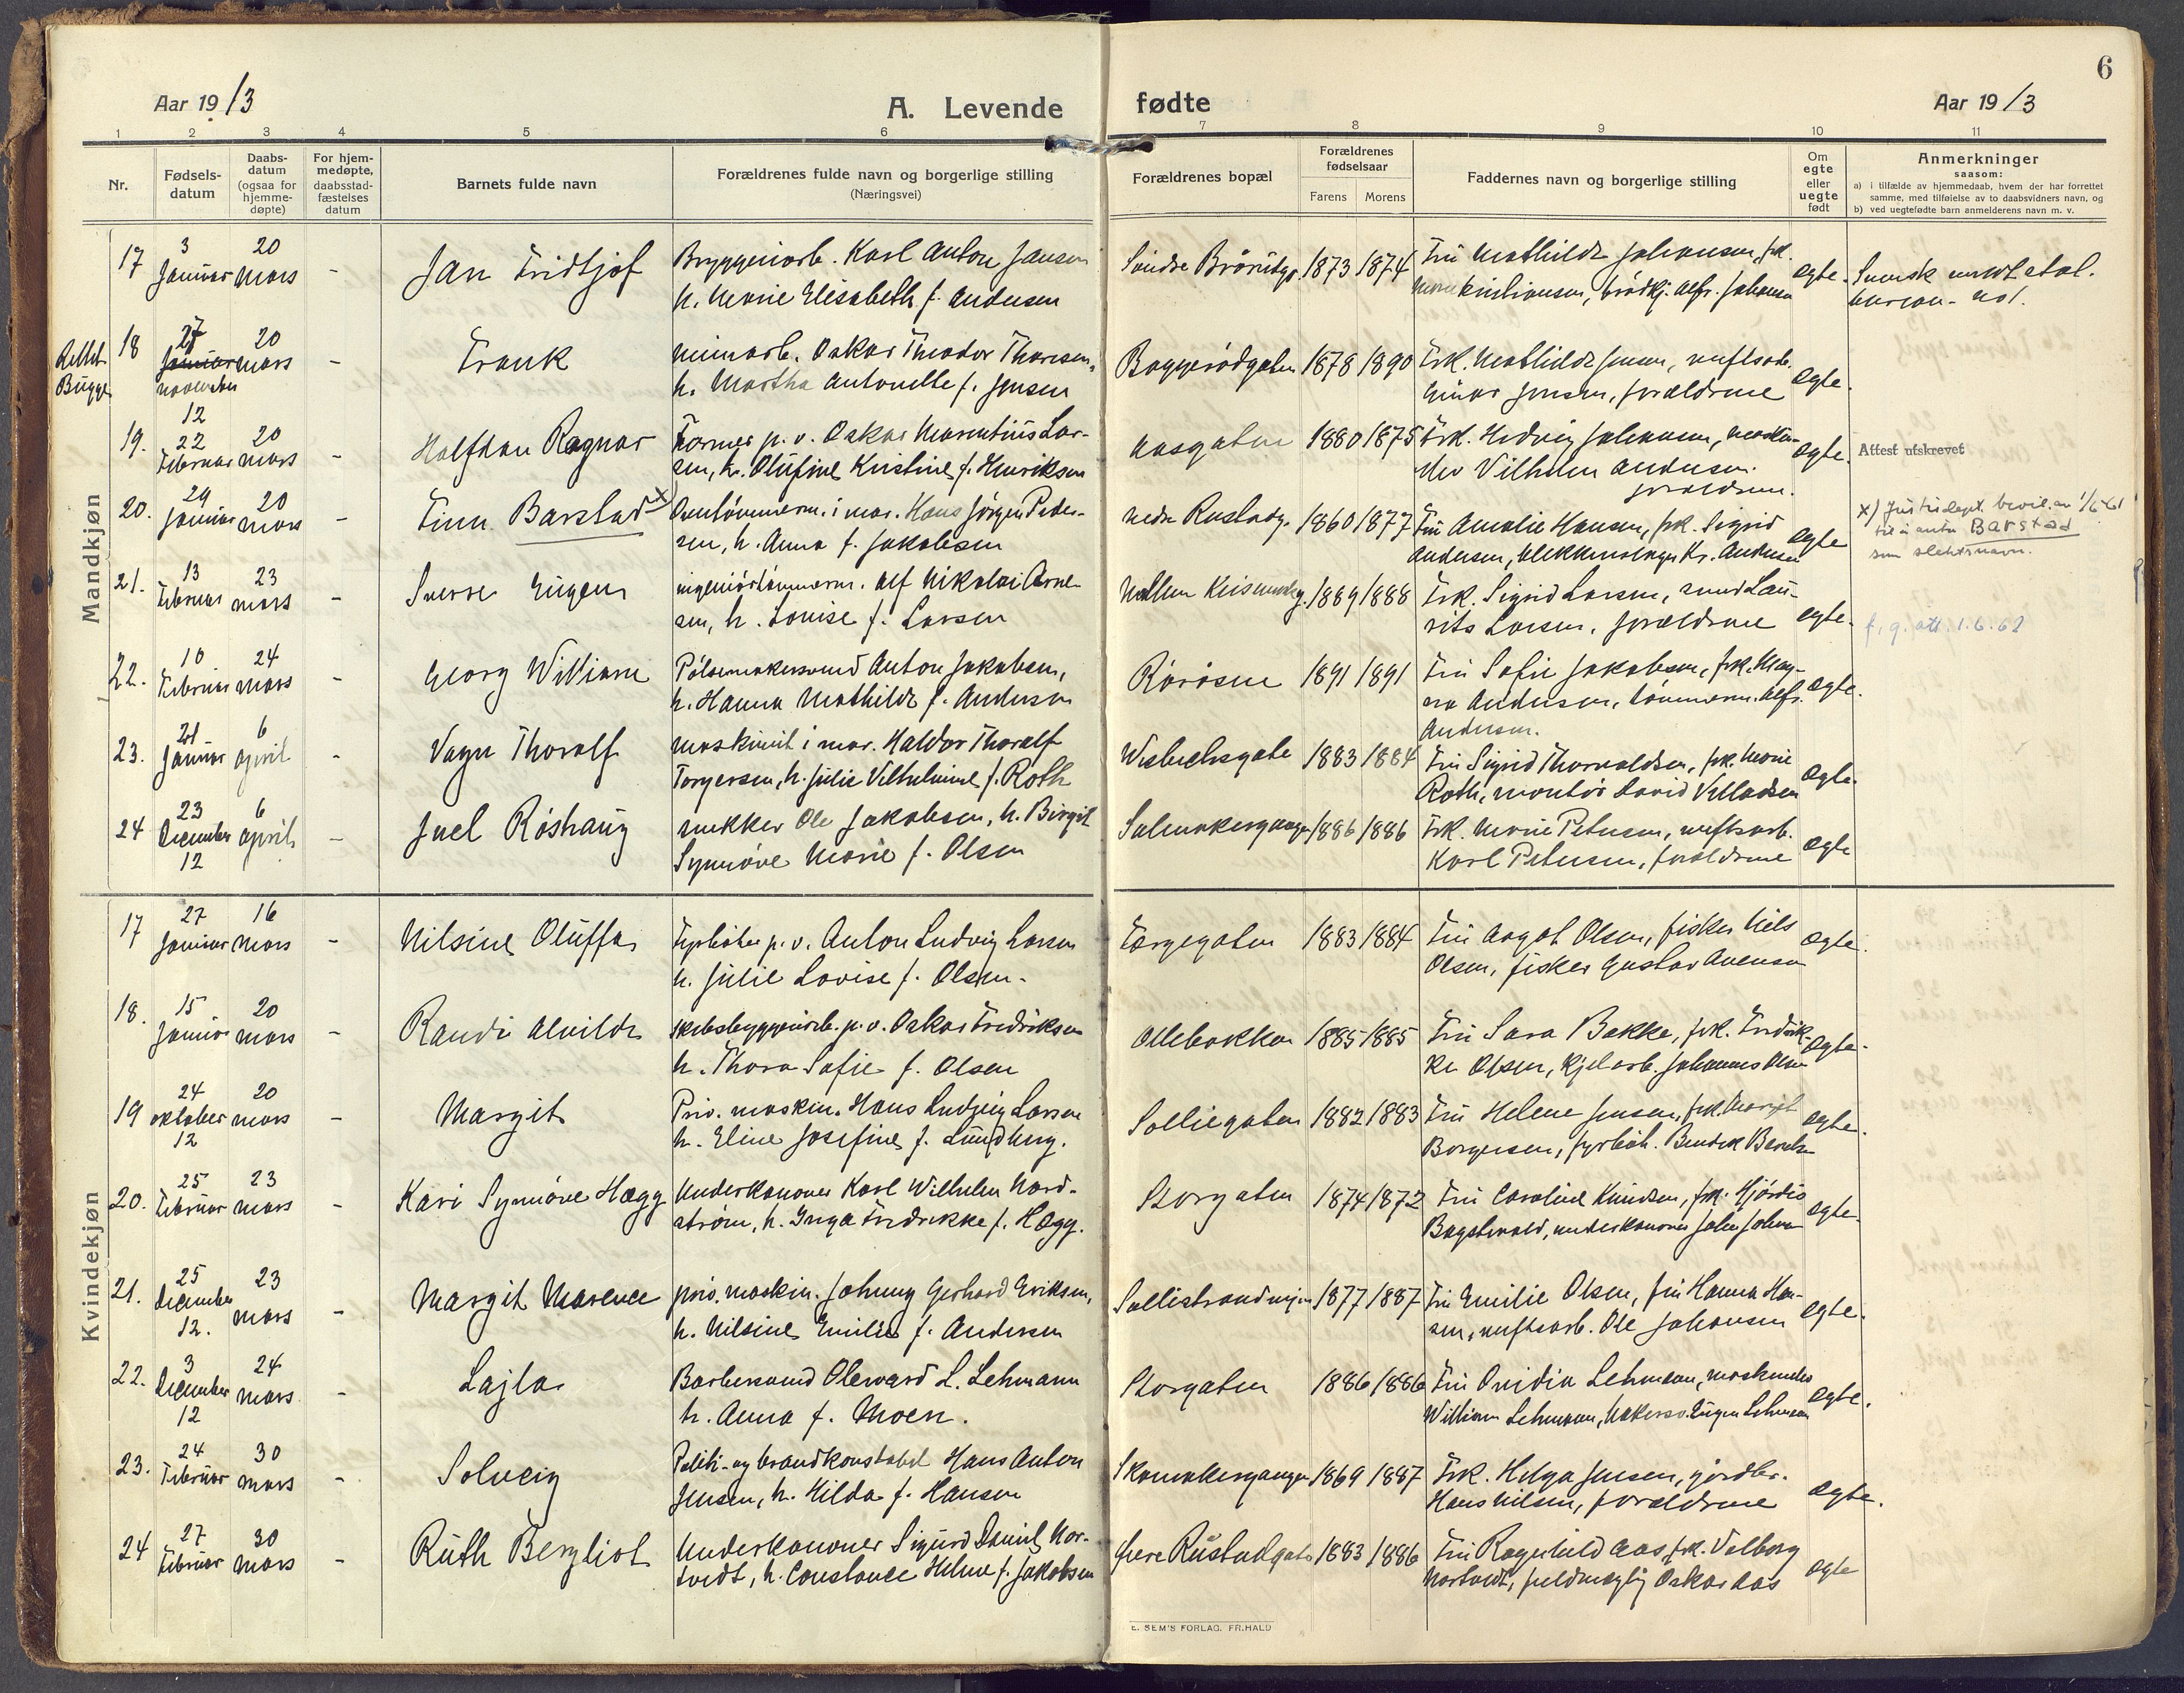 6
Aar 19 13
A. Levende
fødte
Aar 19 13
1 2 3 4 5 6 7 8 9 10 11
Nr.
Fødsels-
datum
Daabs-
datum
(ogsaa for
hjemme-
døpte)
For hjem-
medøpte,
daabsstad-
fæstelses
datum
Barnets fulde navn
Forældrenes fulde navn og borgerlige stilling
(Næringsvei)
Forældrenes bopæl
Forældrenes
fødselsaar
Farens Morens
Faddernes navn og borgerlige stilling
Om
egte
eller
uegte
født
Anmerkninger
saasom:
a) i tilfælde av hjemmedaab, hvem der har forrettet
samme, med tilføielse av to daabsvidners navn, og
b) ved uegtefødte barn anmelderens navn m. v.
Mandkjøn
17 3 Januar 20 mars - Jan Fridtjof
Bryggeriarb. Karl Anton Jansen
h. Marie Elisabeth f. Andersen
Søndre 1873 1874
Fru Mathilde Johansen, frk.
Kristiansen, brødkj. Alfr. Johansen
egte.
Svensk
Rettet
Bugge
18 27 Januar november 12 20 mars - Frank
Oskar Theodor Thoresen,
h. Martha Antonette f. Jensen
Baggerødgaten 1878 1890
Frk. Mathilde Jensen, verftsarb.
Einar Jensen, forældrene
egte.
19. 22 Februar 20 mars - Halfdan Ragnar
Former p. v. Oskar Marentius Lar-
sen, h. Olufine Kristine f. Henriksen
Aasgaten 1880 1875
Frk. Hedvig Johansen, maskin-
Vilhelm Andersen.
forældren.
egte.
Attest utskrevet
20. 29 Januar 20 mars - Finn Barstad x
i mar. Hans Jørgen Peder-
sen, h. Anna f. Jakobsen
Nedre Rustadg. 1860 1877
Fru Amalie Hansen, frk. Sigrid
Andersen, blikkenslager Kr. Andersen
egte
x) Justisdept. bevil. av 1/6 61
til å anta Barstad
som slektsnavn.
21. 13 Februar 23 mars - Sverre Eugen
Alf Nikolai Arne-
sen, h. Louise f. Larsen
Mellem 1889 1888
Frk. Sigrid Larsen, svend Lau-
rits Larsen, forældrene
egte.
f. g. att. 1.6.62
22. 10 Februar 24 mars - Georg William
Pølsemakersvend Anton Jakobsen,
h. Hanna Mathilde f. Andersen
Rørosen 1891 1891
Fru Sofie Jakobsen, frk. Mag-
na Andersen, tømmerm. Alfr.
Andersen.
egte.
23. 21 Januar 6 april - Vagn Thoralf
Maskinist i mar. Haldor Thoralf
Torgersen, h. Julie Vilhelmine f. Roth
Wisbechsgate 1883 1884
Fru Sigrid Thorvaldsen, frk. Marie
Roth, montør David Villadsen
egte.
24 23 December 12 6 april - Juel Røshaug
snekker Ole Jakobsen, h. Birgit
Synnøve Marie f. Olsen
Salmakergangen 1886 1886
Frk. Marie Petersen, verftsarb.
Karl Petersen, forældrene
egte
Kvindekjøn
17 27 Januar 16 mars - Nilsine Oluffa
Fyrbøter p. v. Anton Ludvig Larsen
h. Julie Lovise f. Olsen.
Færgegaten 1883 1884
Fru Aagot Olsen, fisker Nils
Olsen, fisker Gustav Avensen
egte.
18. 15 Januar 20 mars - Randi Alvilde
skibsbyggeriarb. p. v. Oskar Fredriksen
h. Thora Sofie f. Olsen
Ollebakken 1885 1885
Fru Sara Bakke, frk. Fredrik-
ke Olsen, kjelarb. Johannes Olsen
egte.
19 24 oktober 12 20 mars - Margit
Priv. maskin. Hans Ludvig Larsen
h. Eline Josefine f. Lundberg.
Solliegaten 1882 1883
Fru Helene Jensen, frk. Margit
Borgersen, fyrbøt. Bendik
egte.
20. 25 Februar 23 mars - Kari Synnøve Hægg
Underkanoner Karl Wilhelm Nord-
strøm, h. Inga Fredrikke f. Hægg.
Storgaten 1874 1872
Fru Caroline Knudsen, frk. Hjørdis
underkanoner
egte.
21. 25 December 12. 23 mars - Margit Marence
priv. maskin. Johnny Gerhard Eriksen,
h. Nilsine Emilie f. Andersen
Sollistrandveien 1877 1887
Fru Emilie Olsen, fru Hanna Han-
sen, verftsarb. Ole Johansen
egte.
22. 3 December 12 24 mars - Lajla
Barbersvend Olevard L. Lehmann
h. Anna f. Moen.
Storgaten 1886 1886
Fru Ovidia Lehmann,
William Lehmann, Eugen Lehmann
egte.
23. 24 Februar 30 mars - Solveig
Politi- og brandkonstabel Hans Anton
Jensen, h. Hilda f. Hansen
Skomakergangen 1869 1887
Frk. Helga Jensen, gjørdbr.
Hans Nilsen, forældrene
egte.
24 27 Februar 30 mars - Ruth Bergliot
Underkanoner Sigurd Daniel Nor-
tvedt, h. Constance Helene f. Jakobsen
Øvre Rustadgate 1883 1886
Fru Ragnhild Aas, frk. Valborg
Nortvedt, Oskar Aas
egte
E. SEM'S FORLAG. FR.HALD